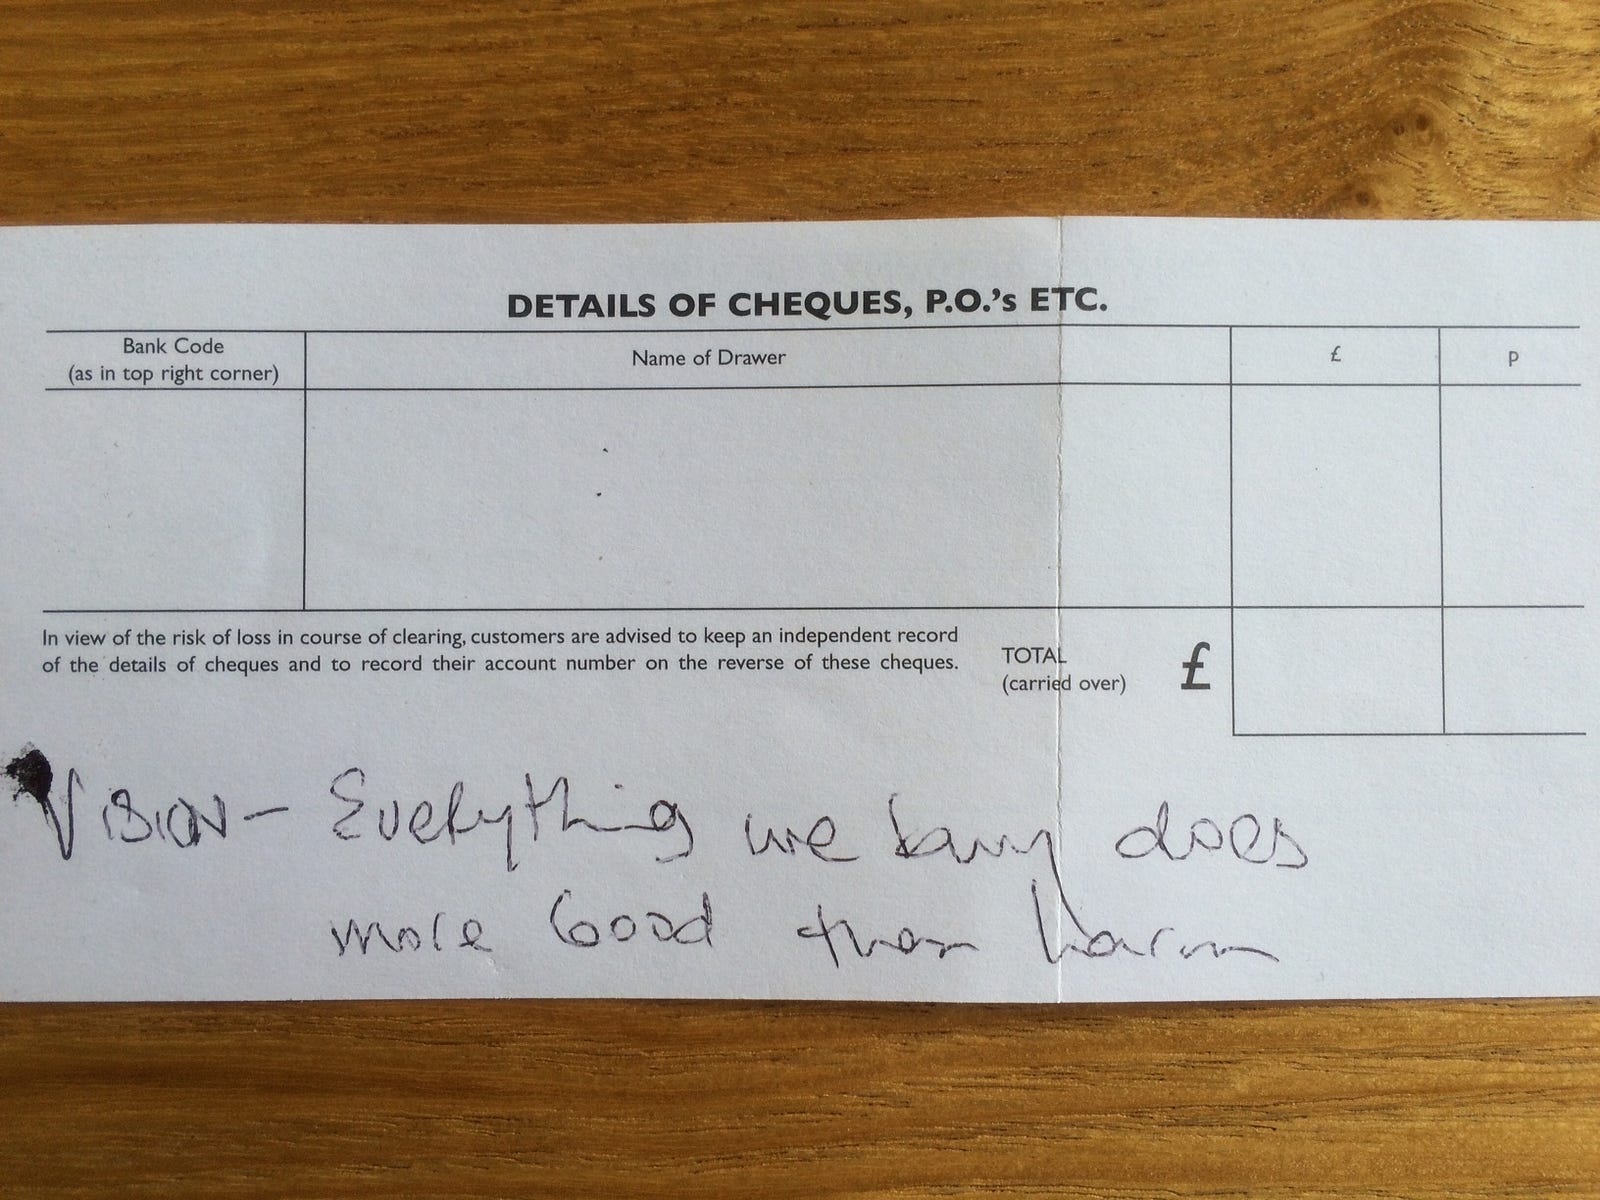 DETAILS OF CHEQUES, P.O.'s ETC.
Bank Code
(as in top right corner)
Name of Drawer
£
P
In view of the risk of loss in course of clearing, customers are advised to keep an independent record
of the details of cheques and to record their account number on the reverse of these cheques.
TOTAL
(carried over)
£
VISION - Everything we buy does
more Good than harm